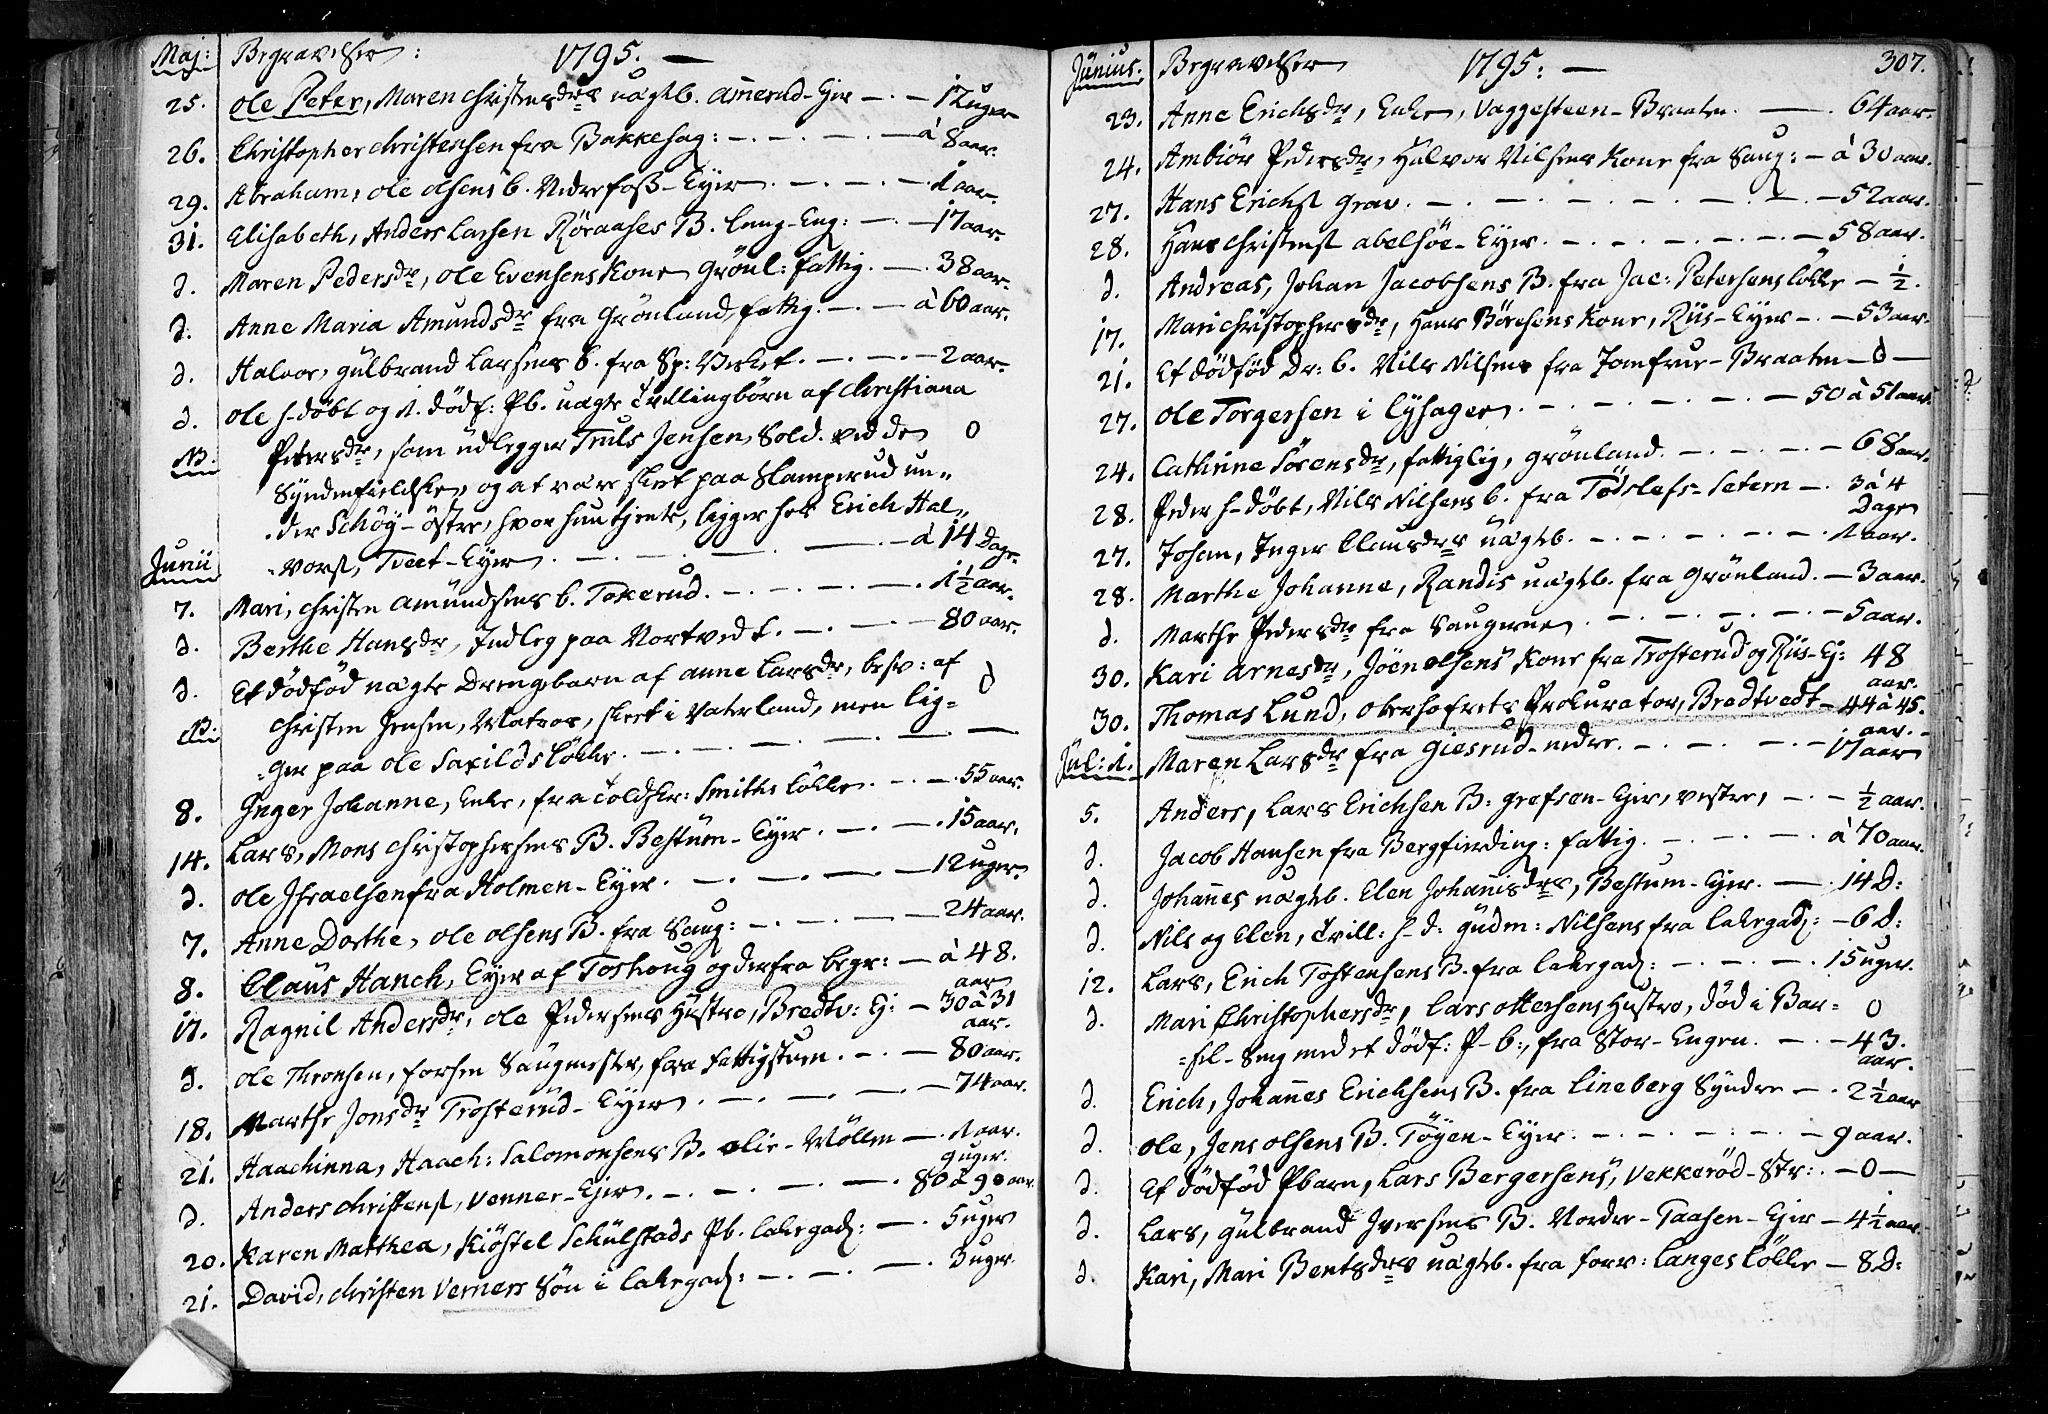 Maj: Begravelser: 1795. —
25. Ole Peter, Maren Christensdrs uægtb. Amerud-Eier — . — 12 uger
26. Christopher Christensen fra Bakkehag: — . — . — . — à 8 aar.
29. Abraham, Ole Olsens b. Nedrefoss-Eyer . — . — . — 1 aar.
31. Elisabeth, Anders Larsen Röraases B. Eng: — . — 17 aar.
d. Maren Pedersdr, Ole Evensens Kone Grönl: fattig. — . 38 aar.
d. Anne Maria Amundsdr fra Grönland, fattig. — . — à 60 aar.
d. Halvor, Gulbrand Larsens b. fra Sp: Verket. — . — . — 2 aar.
d. Ole h-döbt og 1. dödf: Pb. uægte Tvillingbörn af Christiana
NB. Petersdr, som udlegger Truls Jensen, Sold. ved de 0
Syndenfieldske, og at være skeet paa Slamperud un-
der Schöy-östre, hvor hun tjente, ligger hos Erich Hal-
Junii vors, Tveet-Eyer . — . — . — . — à 14 Dage.
7. Mari, Christen Amundsens b. Tokerud. — . — . — . 1 1/2 aar.
d. Berthe Hansdr, Indleg paa Nortvedt. — . — . — 80 aar.
d. Et dödföd uægte Drengebarn af Anne Larsdr, besv: af
NB: Christen Jensen, Matros, skeet i Vaterland, men lig- 0
ger paa Ole Saxilds Lökke . — . — . — . — . —
8. Inger Johanne, Enke, fra Toldskr: Smiths Lökke . — . — . 55 aar.
14. Lars, Mons Christophersens B. Bestum-Eyer . — . — . 15 aar.
d. Ole Isfraelsen fra Holmen-Eyer. — . — . — . — 12 uger.
7. Anne Dorthe, Ole Olsens B. fra Saug: — . — . — 24 aar.
8. Claus Hanch, Eyer af Toshoug og derfra begr: — à 48. aar
17. Ragnil Andersdr, Ole Pedersens Hustro, Bredtv: Ej: — 30 à 31 aar.
d. Ole Thronsen, forhen Saugmester, fra Fattigstuen. — . — 80 aar.
18. Marthe Jonsdr Trosterud-Eyer . — . — . — . — 74 aar.
21. Haachinna, Haach: Salomonsens B. Olie-Möllen — . 1 aar. 9 uger.
d. Anders Christens, Venner-Ejer . — . — . — . — 80 à 90 aar.
20. Karen Matthea, Kiöstel Schulstads Pb. Lakegad: — . 5 uger
21. David, Christen Verners Sön i Lakegad: — . — . — 3 uger.
Junius. Begravelser 1795: — 307.
23. Anne Erichsdr, Enke, Vaggesteen-Braaten. — . 64 aar.
24. Ambiör Pedersdr, Halvor Nilsens Kone fra Saug: — à 30 aar.
27. Hans Erichs Grav. — . — . — . — . — . — 52 aar.
28. Hans Christens Abelsöe-Eyer. — . — . — . — . — 58 aar.
d. Andreas, Johan Jacobsens B. fra Jac: Petersens Lökke — 1/2.
17. Mari Christophersdr, Hans Börchsens Kone, Riis-Eyer — . — 53 aar.
21. Et dödföd Dr: b. Nils Nilsens fra Jomfrue-Braaten — 0 —
27. Ole Torgersen i Eysagen . — . — . — . — 50 à 51 aar.
24. Cathrine Sörensdr, fattiglig, Grönland. — . — . — . — 68 aar.
28. Peder h-döbt, Nils Nilsens b. fra Tödslefs-Setern — . 3 à 4 Dage
27. Johan, Inger Clausdrs uægtb. — . — . — . — . 1 aar.
28. Marthe Johanne, Randis uægtb. fra Grönland. — 3 aar.
d. Marthe Pedersdr fra Saugerne . — . — . — . — 5 aar.
30. Kari Arnesdr, Jöen Olsens Kone fra Trosterud og Riis-Ej: 48 aar.
30. Thomas Lund, Oberhofrets Prokurator, Bredtvedt — 44 à 45. aar.
Jul: 1. Maren Larsdr fra Giesrud-nedre. — . — . — . — 17 aar
5. Anders, Lars Erichsen B: Grefsen-Ejer, vestre, — . — 1/2 aar.
d. Jacob Hansen fra Bergfierding: fattig. — . — . — . à 70 aar.
d. Johannes uægtb. Elen Johannisdrs, Bestum-Ejer. — . 14 D:
d. Nils og Elen, Tvill: h-d: Gudm: Nilsens fra Lakegad: — 6 D:
12. Lars, Erich Tostensens B. fra Lakegad: — . — . — . 15 uger.
d. Mari Christophersdr, Lars Ottersens Hustro, död i Bar- 0
sel-Seng med et dödf: P-b:, fra Stor-Engen. — . — 43. aar.
d. Erich, Johannes Erichsens B. fra Lineberg Syndre — . 2 1/2 aar
d. Ole, Jens Olsens B. Töyen-Eyer. — . — . — . — . — 9 aar.
d. Et dödföd Pbarn, Lars Bergersens, Vekkeröd-Str: . — 0 —
d. Lars, Gulbrand Iversens B. Nordre-Taasen-Ejer — 4 1/2 aar.
d. Kari, Mari Bentsdrs uægtb. fra forv: Langes Lökke — 8 D: